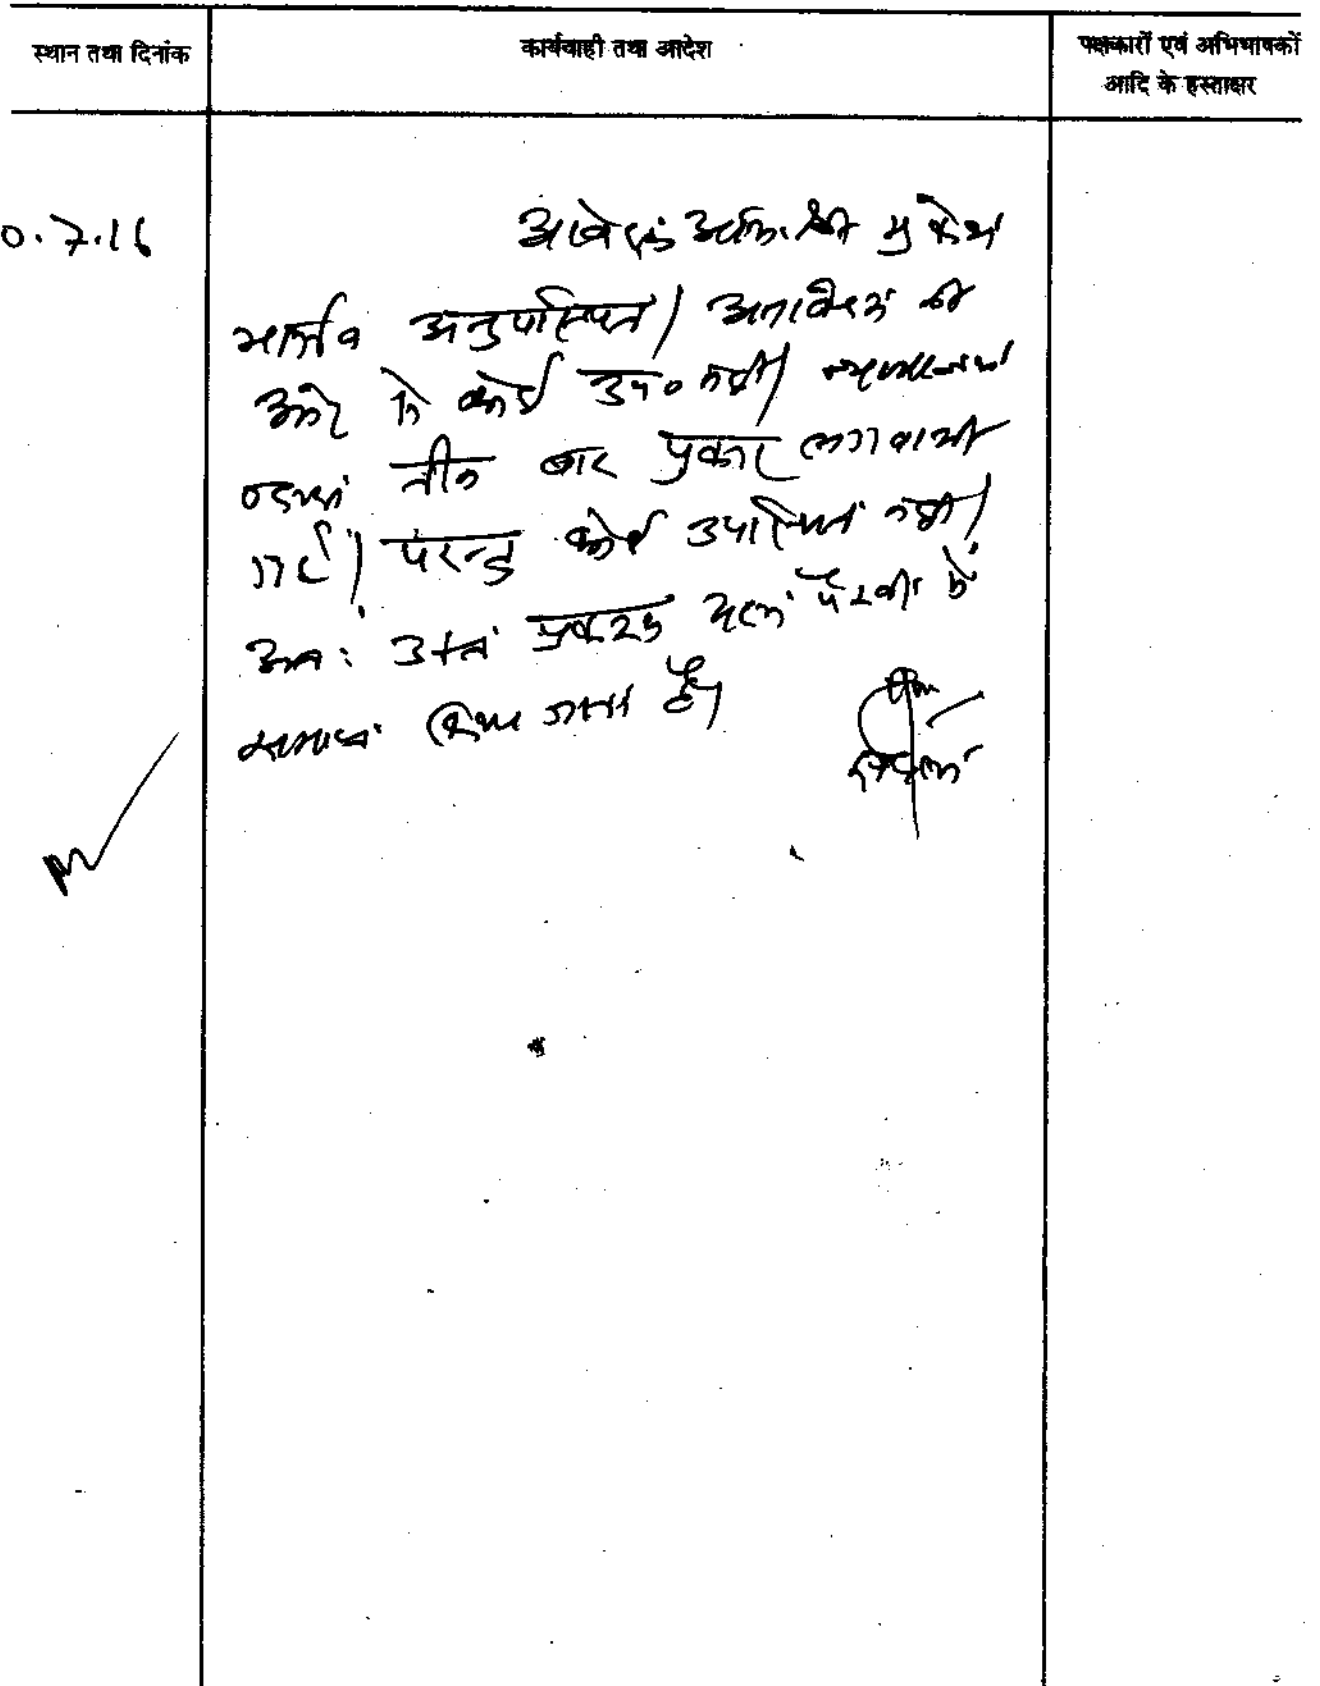 स्थान तथा दिनांक
कार्यवाही तथा आदेश
पक्षकारों एवं अभिभाषकों
आदि के हस्ताक्षर
0.7.16
आवेदक अधि. श्री मुकेश
भार्गव अनुपस्थित। अनावेदक की
ओर से कोई उप० नहीं। न्यायालय
तीन बार पुकार लगवायी
गई। परन्तु कोई उपस्थित नहीं।
अतः उक्त प्रकरण अदम पैरवी में
समाप्त किया जाता है।
सदस्य